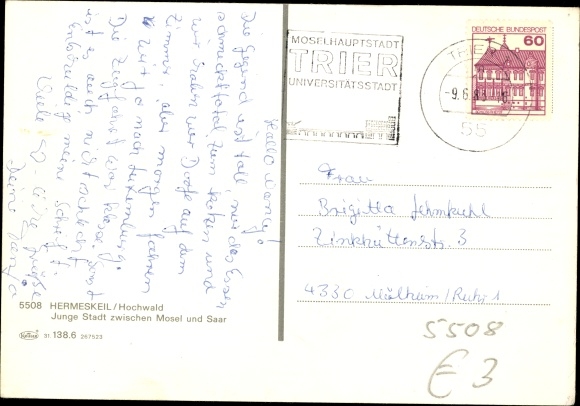 Hallo Mamy!
Die Gegend ist toll, nur das Essen
schmeckt total zum kotzen und
wir haben vor Doofe auf dem
Zimmer, aber morgen fahren
wir ja nach Luxemburg.
Die Zugfahrt war klasse.
ist es auch nicht schlecht, sonst
meine Schrift.
Viele Grüße
Deine
5508 HERMESKEIL/Hochwald
Junge Stadt zwischen Mosel und Saar
51.138.6 267523
MOSELHAUPTSTADT
TRIER
UNIVERSITÄTSSTADT
TRIER
-9.6.83
55
DEUTSCHE BUNDESPOST
60
Frau
Brigitta Lehmkuhl
Zinkhüttenstr. 3
4330 Mülheim/Ruhr 1
5508
€ 3